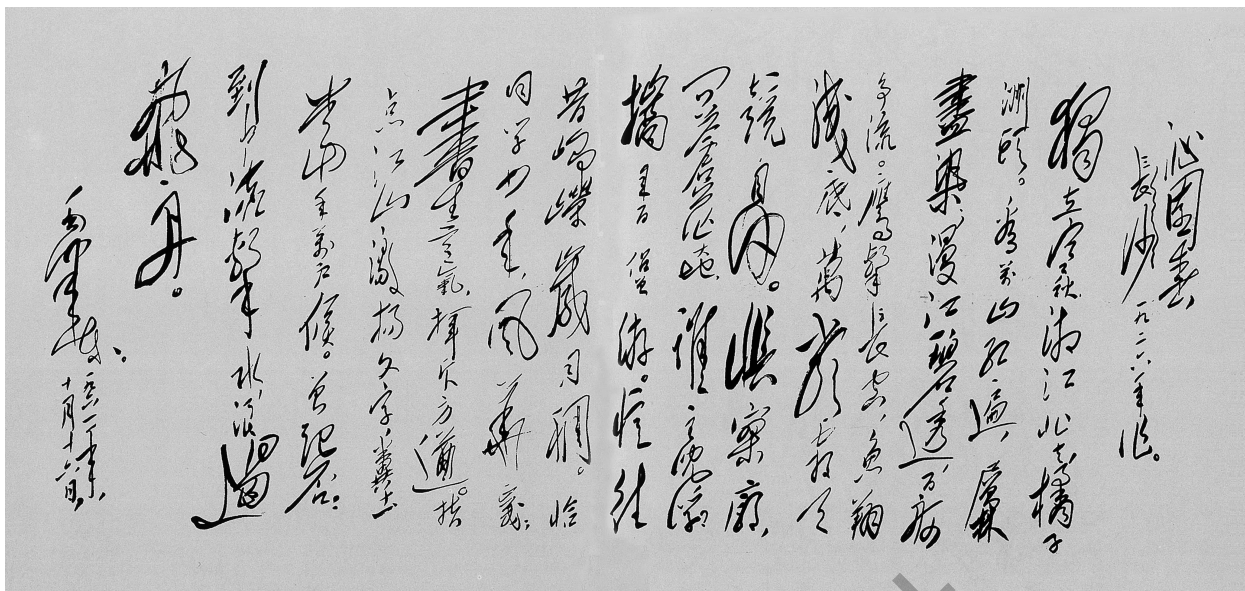 沁園春、
長沙 一九二六年作。
獨立寒秋湘江北去橘子
洲頭。看万山紅遍,層林
盡染,漫江碧透,百舸
争流。鷹擊長空,魚翔
淺底,萬类霜天
競自由。悵寥廓,
问蒼茫大地,誰主沉浮
攜来百侣曾游。憶往
昔崢嶸歲月稠。恰
同学少年,风華正茂;
書生意氣,揮斥方遒。指
点江山,激揚文字,糞土
当年萬户侯。曾記否:
到中流擊水,浪遏
飛舟。
毛澤東。
十月十六日,